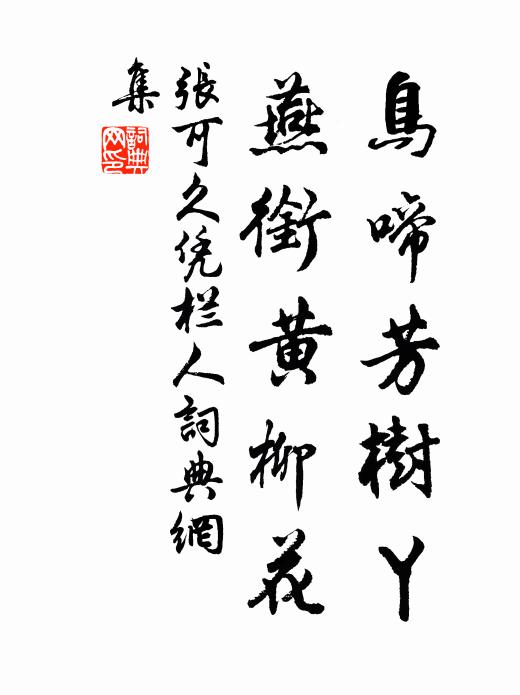 鳥啼芳樹丫
燕銜黃柳花
張可久凭栏人詞典網
集
詞典
网印